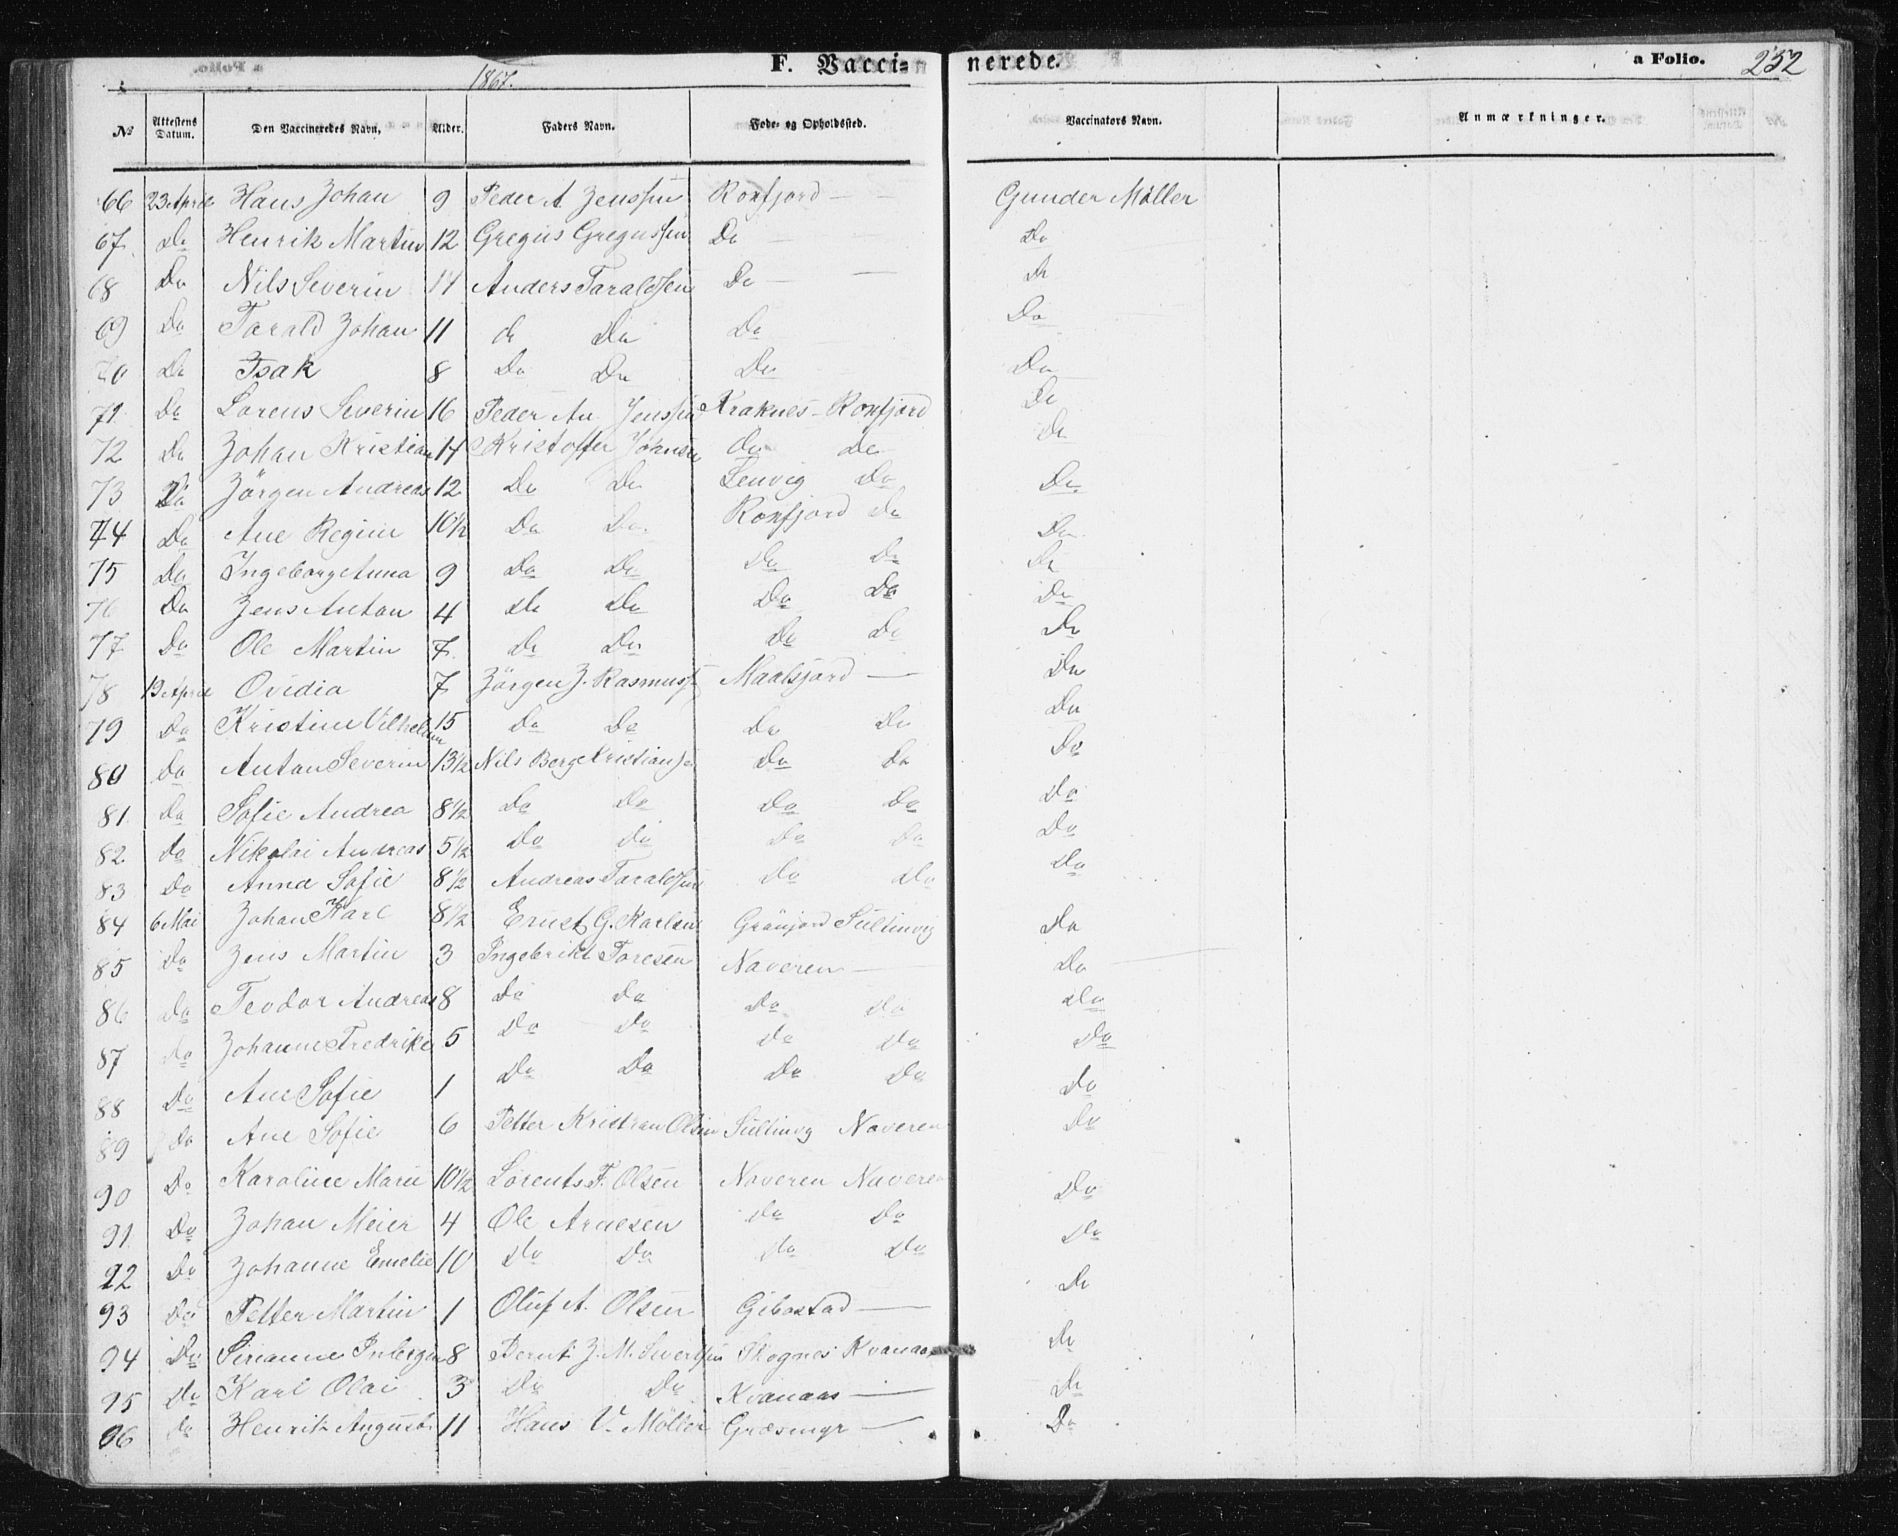 F. Vaccinerede. a Folio. 252
1867.
№ Attestens Datum. Den Vaccineredes Navn. Alder. Faders Navn. Føde- og Opholdssted. Vaccinators Navn. Anmærkninger.
66 23 April Hans Johan 9 Peder A. Jenssen Roxfjord — — Gunder Møller
67 Do Henrik Martin 12 Gregus Gregussen Do — — Do
68 Do Nils Severin 14 Anders Taraldsen Do — — Do
69 Do Tarald Johan 11 do Do Do Do
70 Do Isak 8 Do Do Do Do
71 Do Lorens Severin 16 Peder An. Jenssen Kraknes - Roxfjord Do
72 Do Johan Kristian 14 Kristoffer Johnsen Do do Do
73 Do Jörgen Andreas 12 Do Do Lenvig Do Do
74 Do Ane Regine 10½ Do Do Roxfjord do Do
75 Do Ingeborg Anna 9 Do Do Do Do Do
76 Do Jens Anton 4 Do Do Do Do Do
77 Do Ole Martin 7 Do Do Do Do Do
78 19 April Ovidia 7 Jörgen J. Rasmuss Maalsjord — Do
79 Do Kristine Vilhelm 15 Do Do Do Do Do
80 Do Anton Severin 13½ Nils Berg Kristians Do Do Do
81 Do Sofie Andrea 8½ Do Do Do Do Do
82 do Nikolai Andreas 5½ Do do Do Do Do
83 Do Anna Sofie 8½ Andreas Taraldsen Do Do Do
84 6 Mai Johan Karl 8½ Ernst G. Karlsen Grönjord Sultinvig Do
85 Do Jens Martin 3 Ingebrikt Toresen Naveren — Do
86 Do Teodor Andreas 8 Do Do Do Do Do
87 Do Johanne Fredrike 5 Do Do Do Do Do
88 Do Ane Sofie 1 Do Do Do Do Do
89 Do Ane Sofie 6 Petter Kristian Olsen Sultinvig Naveren Do
90 Do Karoline Marie 10½ Lorents F. Olsen Naveren Naveren Do
91 Do Johan Meier 4 Ole Arnesen Do Do Do
92 Do Johanne Emelie 10 Do Do Do Do Do
93 Do Petter Martin 1 Oluf A. Olsen Gibostad — Do
94 Do Sirianne 8 Bernt J. M. Sivertsen Skognes Kvanaas Do
95 Do Karl Olai 3 Do Do Kvanaas — Do
96 do Henrik August 11 Hans V. Möller Græsmyr — Do